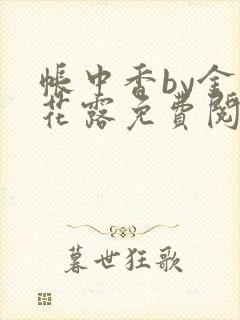 帳中香by金
花露免費閱
暮世狂歌